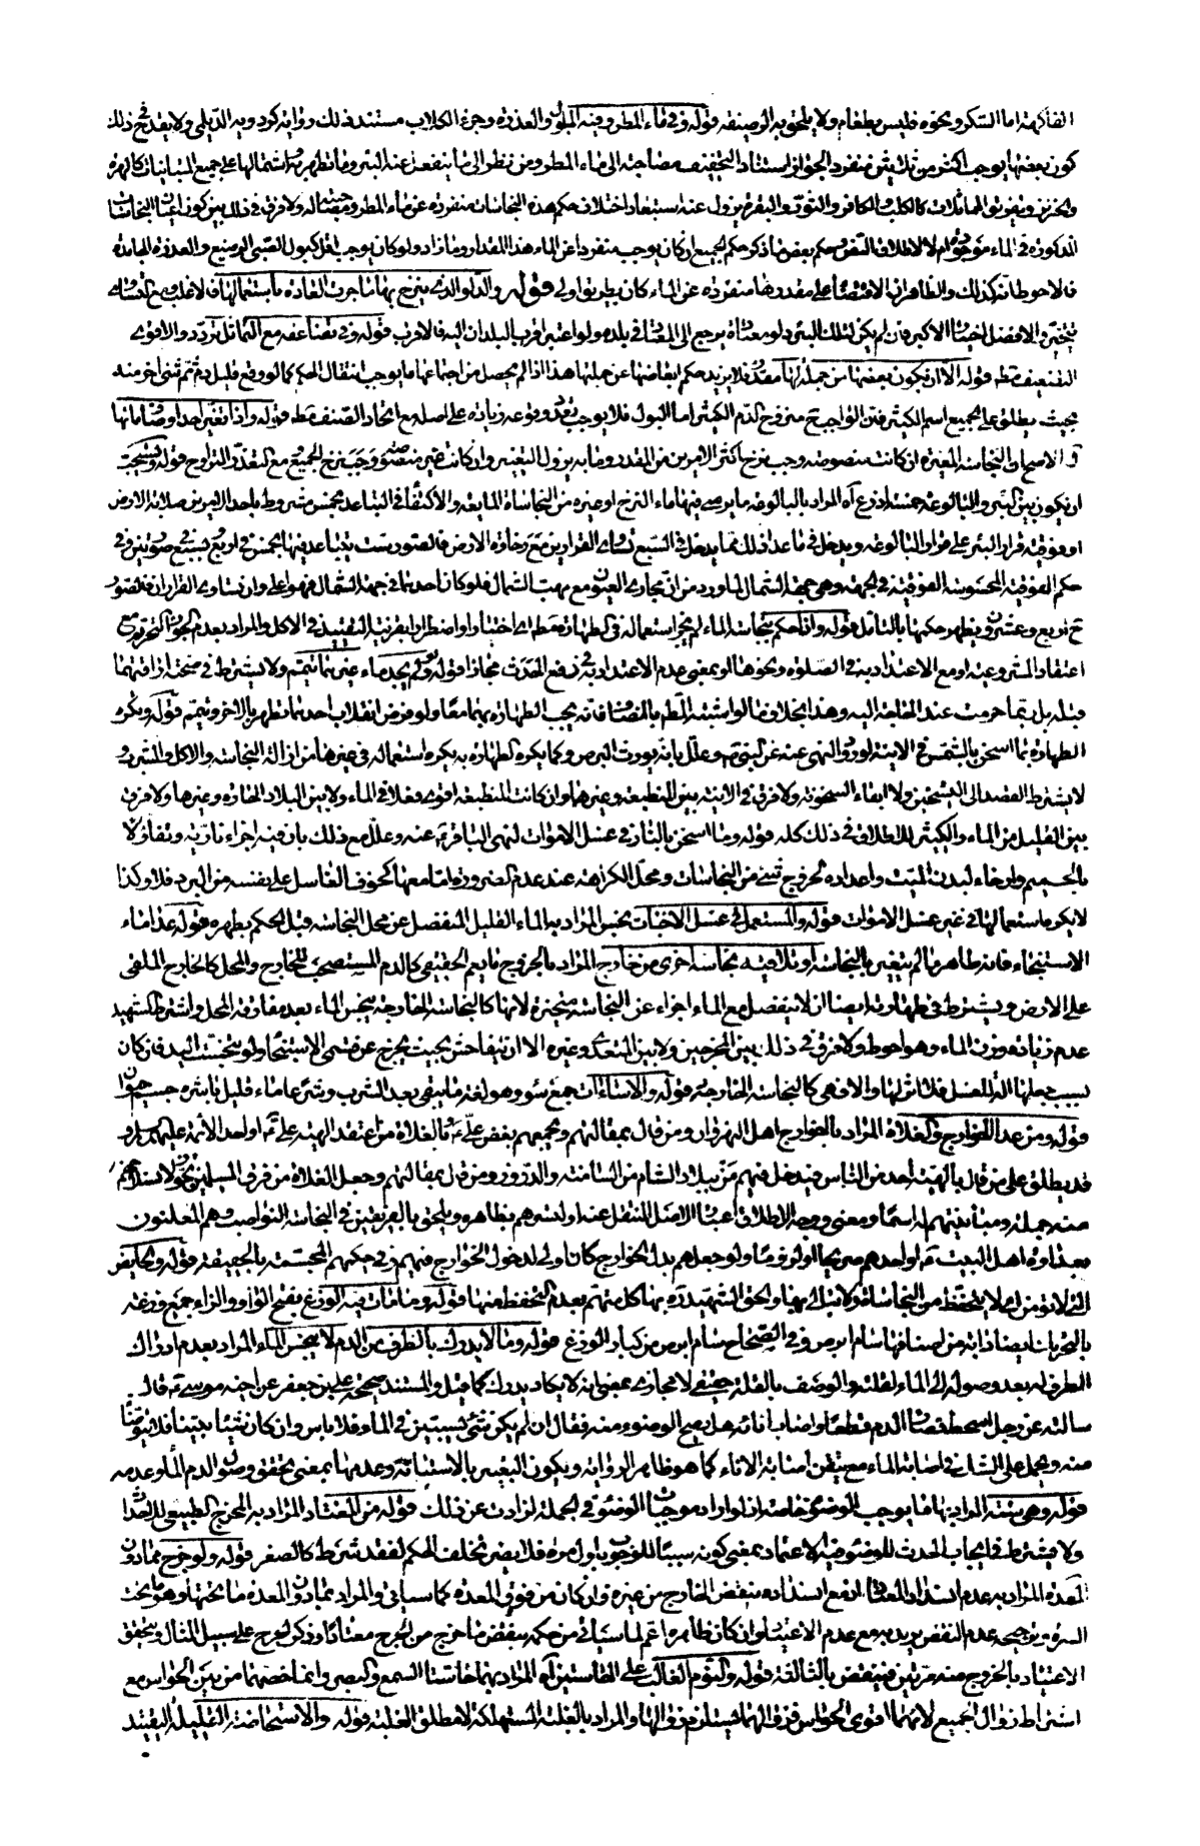 الفاكهة اما السكر ونحوه فليس بطعام ولا يلحق به الرضيع قوله وفي ماء المطر وفيه البول والعذرة وخرء الكلاب مستند ذلك رواية كردويه الديلمي ولا يقدح في ذلك
كون بعضها يوجب اكثر من ثلثين منفردا لجواز استناد التخفيف مصاحبته الى ماء المطر ومن نظر الى ما ينفعل عنه البئر وما تطهر به اشتمالها على جميع المتباينات كالهرة
والخنزير وتفريق المتماثلات كالكلب والكافر والثور والبقر يزول عنه استبعاد اختلاف حكم هذه النجاسات منفردة عن ماء المطر ومصاحبة له ولا فرق في ذلك بين كون اعيان النجاسات
المذكورة في الماء موجودة ام لا لاطلاق النص وحكم بعض ما ذكر حكم الجميع ان كان يوجب منفردا عن الماء هذا المقدار وما زاد ولو كان يوجب اقل كبول الصبي الرضيع والعذرة اليابسة
فالاحوط انه كذلك والظاهر ان الاقتصار على مقدرها منفردة عن الماء كان بطريق اولى قوله والدلو الذي ينزح بها ما جرت العادة باستعمالها فالاغلب ومع التساوي
يتخير والافضل اختيار الاكبر فان لم يكن لتلك البئر دلو معتادة يرجع الى المعتاد في بلده ولو اعتبر اقرب البلدان اليه فالاقرب قوله وفي تضاعفه مع التماثل تردد والاقوى
التضعيف مطلقا قوله الا ان يكون بعضها من جملة لها مقدر فلا يزيد حكم ابعاضها عن جملتها هذا اذا لم يحصل من اجتماعها ما يوجب انتقال الحكم كما لو وقع قليل دم ثم ثنى اخر منه
بحيث يطلق على الجميع اسم الكثير فان الواجب ح منزوح الدم الكثير اما البول فلا يوجب تعدد وقوعه زيادة على اصله مع اتحاد الصنف مطلقا قوله واذا تغير احد اوصاف مائها
آه الاصح ان النجاسة المغيرة ان كانت منصوصة وجب نزح اكثر الامرين من المقدر وما به يزول التغير وان كانت غير منصوصة وجب نزح الجميع مع التعذر التراوح قوله ويستحب
ان يكون بين البئر والبالوعة خمسة اذرع آه المراد بالبالوعة ما يرمى فيها ماء النزح او غيره من النجاسات المايعة والاكتفاء في التباعد بخمس مشروط باحد الامرين صلابة الارض
او فوقية قرار البئر على قرار البالوعة ويدخل في ما عدا ذلك مما يدخل في السبع تساوي القرارين مع رخاوة الارض فالصور ست يتباعد فيها بخمس في اربع وبسبع في صورتين وفي
حكم الفوقية المحسوسة الفوقية في الجهة وهي جهة الشمال لما ورد من ان مجاري العيون مع مهب الشمال فلو كان احدهما في جهة الشمال فهو اعلى وان تساوى القرار ان فالصور
ح اربع وعشرون ويظهر حكمها بالتامل قوله واذا حكم بنجاسة الماء لم يجز استعماله في الطهارة مطلقا اي اختيارا واضطرارا بقرينة التقييد في الاكل والمراد بعدم الجواز التحريم مع
اعتقاد المشروعية او مع الاعتداد به في الصلوة ونحوها او بمعنى عدم الاعتداد به في رفع الحدث مجازا قوله ولو لم يجد ماء غيرهما تيمم ولا يشترط في صحته اراقتهما
قبله بل ربما حرمت عند الحاجة اليه وهذا بخلاف ما لو اشتبه المطلق بالمضاف فانه يجب الطهارة بهما معا ولو فرض انقلاب احدهما تطهر بالاخر وتيمم قوله ويكره
الطهارة بما اسخن بالشمس في الانية لورود النهي عنه عن النبي ص وعلل بانه يورث البرص وكما يكره الطهارة به يكره استعماله في غيرها من ازالة النجاسة والاكل والشرب و
لا يشترط القصد الى التسخين ولا ابقاء السخونة ولا فرق في الانية بين المنطبعة وغيرها وان كانت المنطبعة اقوى فعلا في الماء ولا بين البلاد الحارة وغيرها ولا فرق
بين القليل من الماء والكثير للاطلاق في ذلك كله قوله وما اسخن بالنار في غسل الاموات لنهي الباقر ع عنه وعلل مع ذلك بان فيه اجزاء نارية وتفاؤلا
بالحميم وارخاء لبدن الميت واعداده لخروج شيء من النجاسات ومحل الكراهة عند عدم الضرورة اما معها كخوف الغاسل على نفسه من البرد فلا وكذا
لا يكره استعمالها في غير غسل الاموات قوله والمستعمل في غسل الاخباث نجس المراد به الماء القليل المنفصل عن محل النجاسة قبل الحكم بطهره قوله عدا ماء
الاستنجاء فانه طاهر ما لم يتغير بالنجاسة او تلاقيه نجاسة اخرى من خارج المراد بالخروج ما يعم الحقيقي كالدم المستصحب للخارج والمحل كالخارج الملقى
على الارض ويشترط في طهارته ايضا ان لا ينفصل مع الماء اجزاء عن النجاسة متميزة لانها كالنجاسة الخارجة ينجس الماء بعد مفارقة المحل واشترط الشهيد
عدم زيادة وزن الماء وهو احوط ولا فرق في ذلك بين المخرجين ولا بين المتعدي وغيره الا ان يتفاحش بحيث يخرج عن مسمى الاستنجاء ولو تنجست اليد فان كان
بسبب جعلها آلة للغسل فلا تاثير لها والا فهي كالنجاسة الخارجة قوله والاساءات جمع سؤر وهو لغة ما يبقى بعد الشرب وشرعا ماء قليل باشره جسم حيوان
قوله ومن عدا الخوارج والغلاة المراد بالخوارج اهل النهروان ومن قال بمقالتهم ويجمعهم بغض علي ع وبالغلاة من اعتقد الهية علي ع او احد الائمة عليهم السلم و
قد يطلق على من قال بالهية احد من الناس فيدخل فيهم من ببلاد الشام من السامنة والدروز ومن قال بمقالتهم وجعل الغلاة من فرق المسلمين تجوز لانسلاخهم
منه جملة ومباينتهم له اسما ومعنى ووجه الاطلاق اعتبار الاصل المنتقل عنه او لتسترهم بظاهره ويلحق بالفريقين في النجاسة النواصب وهم المعلنون
بعداوة اهل البيت ع او احدهم صريحا او لزوما ولو جعلهم بدل الخوارج كان اولى لدخول الخوارج فيهم وفي حكمهم المجسمة بالحقيقة قوله والحايض
التي لا تؤمن اي لا يتحفظ من النجاسات ولا تبالي بها والحق الشهيد ره بها كل متهم بعدم التحفظ منها قوله وما مات فيه الوزغ بفتح الواو والزاء جمع وزغة
بالتحريك ايضا دابة من اصنافها سام ابرص وفي الصحاح سام ابرص من كبار الوزغ قوله وما لا يدرك بالطرف من الدم لا ينجس الماء المراد بعدم ادراك
الطرف له بعد وصوله الى الماء لقلته والوصف بالقلة حقيقي لا مجازي بمعنى انه لا يكاد يدرك كما قيل والمستند صحيحة علي بن جعفر عن اخيه موسى ع قال
سالته عن رجل امتخط فصار الدم قطعا واصاب اناءه هل يصح الوضوء منه فقال ان لم يكن شيء يستبين في الماء فلا باس وان كان شيئا بينا فلا يتوضا
منه ويحمل على الشك في اصابة الماء مع تيقن اصابة الاناء كما هو ظاهر الرواية ويكون التعبير بالاستبانة وعدمها بمعنى تحقق وصول الدم الماء وعدمه
قوله وهي ستة المراد بها ما يوجب الوضوء خاصة اذ لو اراد موجبات الوضوء في الجملة لزادت عن ذلك قوله من المعتاد المراد به المخرج الطبيعي للحدث
ولا يشترط في ايجاب الحدث للوضوء فيه الاعتياد بمعنى كونه سببا للوجوب باول مرة فلا يضر تخلف الحكم لفقد شرط كالصغر قوله ولو خرج مما دون
المعدة المراد به عدم انسداد المعتاد اذ مع انسداده ينقض الخارج من غيره وان كان من فوق المعدة كما سياتي والمراد بما دون المعدة ما تحتها وهو تحت
السرة وتوجيه عدم النقض يريد به مع عدم الاعتياد وان كان ظاهره اعم لما سيأتي من حكمه بنقض ما خرج من الجرح معتادا وذكر الجرح على سبيل المثال ويتحقق
الاعتياد بالخروج منه مرتين فينقض بالثالثة قوله والنوم الغالب على الحاستين آه المراد بهما حاستا السمع والبصر وانما خصهما من بين الحواس مع
اشتراط زوال الجميع لانهما اقوى الحواس فزوالهما يستلزم زوالها والمراد بالغلبة المستهلكة لا مطلق الغلبة قوله والاستحاضة القليلة التقييد